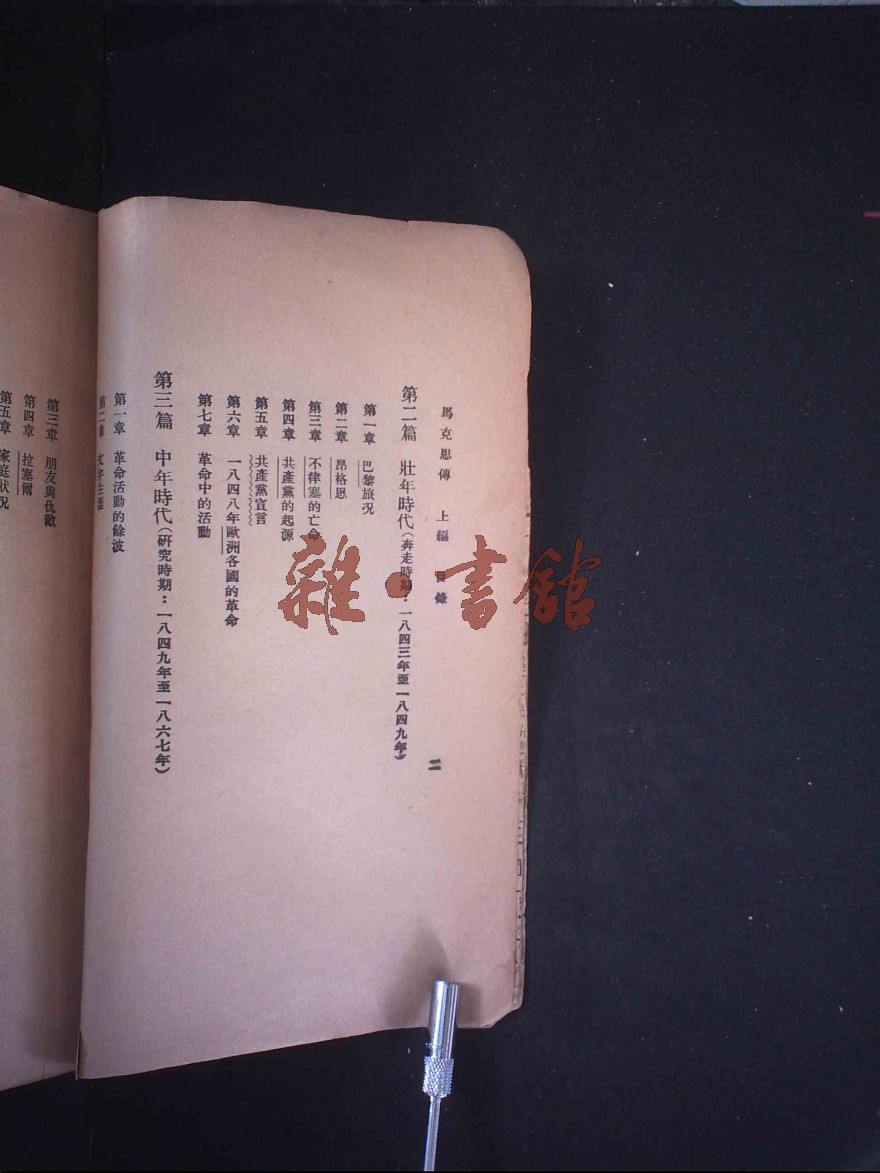 馬克思傳 上編 目錄 二
第二篇 壯年時代(奔走時期:一八四三年至一八四九年)
第一章 巴黎旅況
第二章 昂格思
第三章 不律塞的亡命
第四章 共產黨的起源
第五章 共產黨宣言
第六章 一八四八年歐洲各國的革命
第七章 革命中的活動
第三篇 中年時代(研究時期:一八四九年至一八六七年)
第一章 革命活動的餘波
第二章 文字生涯
第三章 朋友與仇敵
第四章 拉塞爾
第五章 家庭狀況
雜·書館